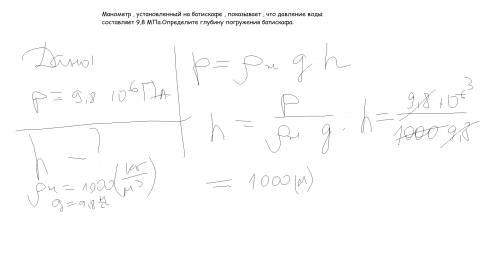 Манометр , установленный на батискафе , показывает , что давление воды
составляет 9,8 МПа.Определите глубину погружения батискафа.
Дано
p = 9,8 10⁶ Па
h - ?
ρж = 1000 (кг/м³)
g = 9,8 м/с²
p = ρж g h
h = p / ρж g . h = 9,8 · 10⁶ ³ / 1000 9,8
= 1000 (м)